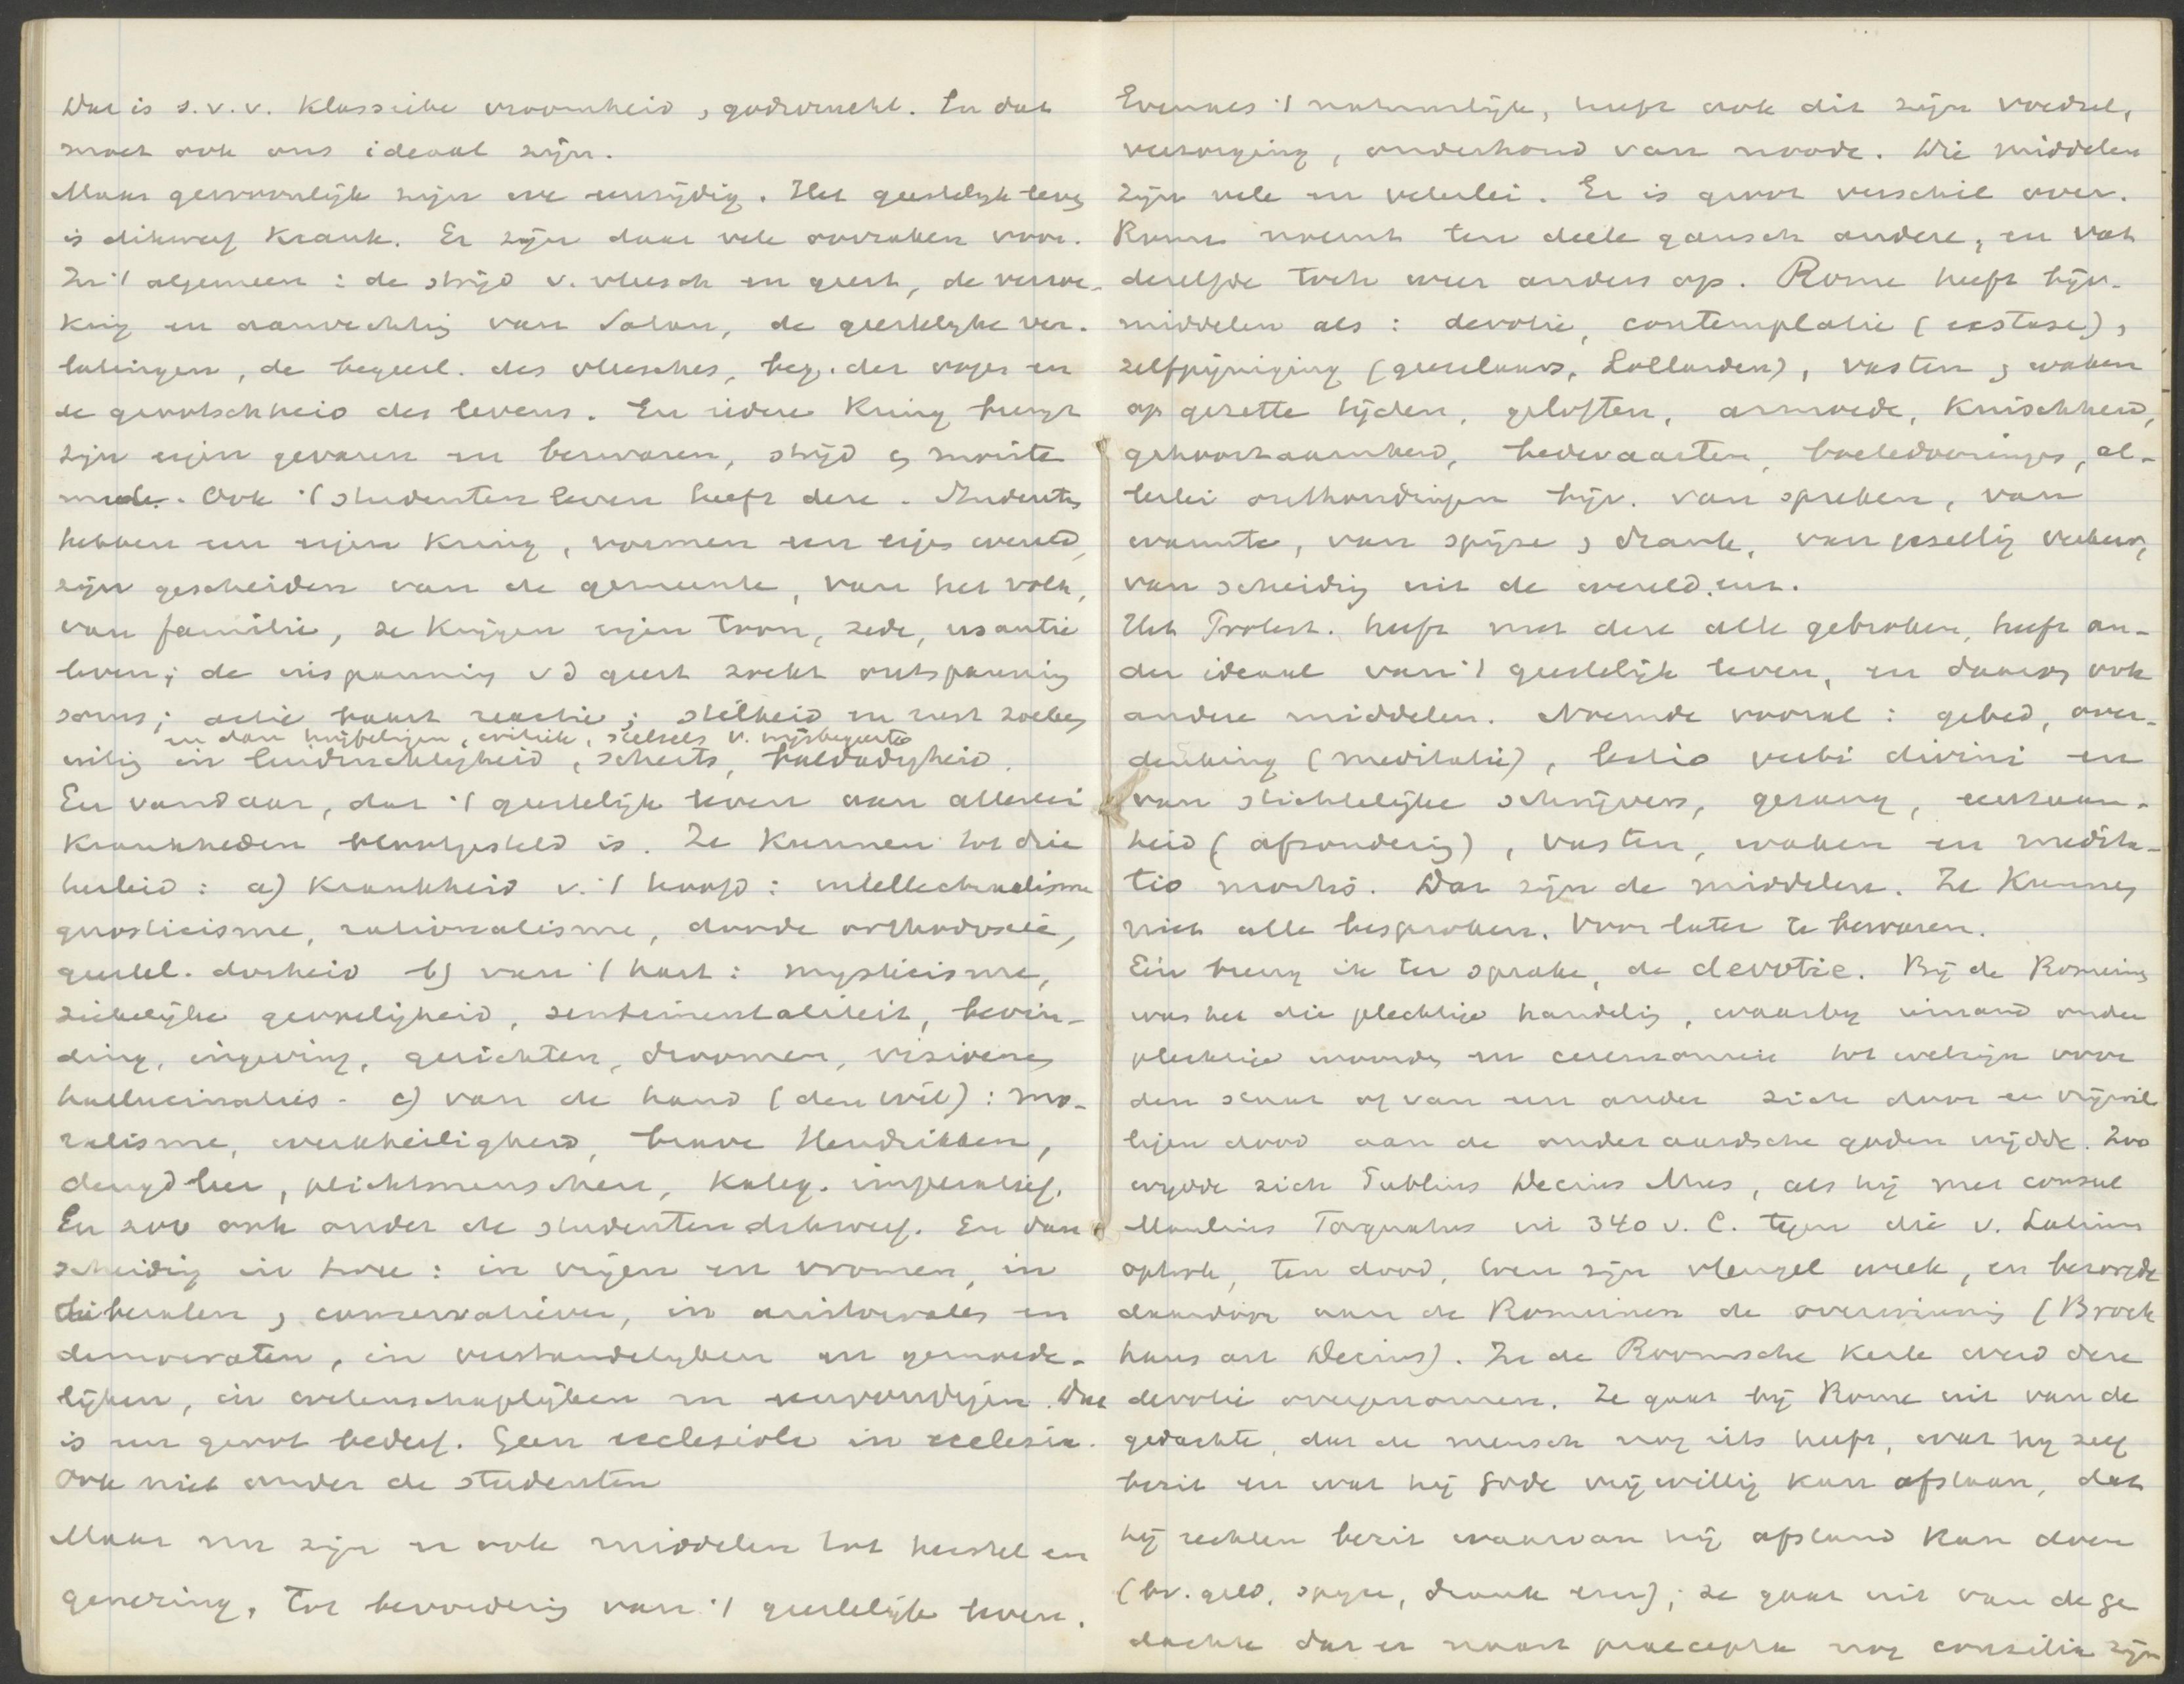 Dat is s.v.v. klassieke vroomheid, godsvrucht. En dat
moet ook ons ideaal zijn.
Maar gewoonlijk zijn we eenzijdig. Het geestelijk leven
is dikwerf krank. Er zijn daar vele oorzaken voor.
In 't algemeen: de strijd v. vleesch en geest, de verzoe-
king en aanvechting van Satan, de geestelijke ver-
latingen, de begeerl. des vleesches, beg. der oogen en
de grootschheid des levens. En iedere kring brengt
zijn eigen gevaren en bezwaren, strijd en moeite
mede. Ook 't studentenleven heeft deze. Studenten
hebben een eigen kring, vormen een eigen wereld,
zijn gescheiden van de gemeente, van het volk,
van familie, ze krijgen eigen toon, zede, usantie
leven; de inspanning v d geest zoekt ontspanning
soms; actie baart reactie; stilheid en rust zoeken
en dan twijfelingen, critiek, stelsels v. wijsbegeerte
uiting in luidruchtigheid, scherts, baldadigheid.
En vandaar, dat 't geestelijk leven aan allerlei
krankheden blootgesteld is. Ze kunnen tot drie
herleid: a) krankheid v. 't hoofd: intellectualisme
gnosticisme, rationalisme, doode orthodoxie,
geestel. dorheid b) van 't hart: mysticisme,
ziekelijke gevoeligheid, sentimentaliteit, bevin-
ding, ingeving, gezichten, droomen, visioenen
hallucinaties. c) van de hand (den wil): mo-
ralisme, werkheiligheid, brave Hendrikken,
deugdleer, plichtmenschen, kateg. imperatief.
En zoo ook onder de studenten dikwerf. En dan
scheiding in twee: in vrijen en vromen, in
liberalen, conservatieven, in aristocraten en
democraten, in verstandelijken en gemoede-
lijken, in wetenschaplijken en eenvoudigen. Dat
is een groot bederf. Geen ecclesiola in ecclesia.
Ook niet onder de studenten
Maar nu zijn er ook middelen tot herstel en
genezing, tot bevordering van 't geestelijk leven.
Evenals 't natuurlijke, heeft ook dit zijn voedsel,
verzorging, onderhoud van noode. Die middelen
zijn vele en velerlei. Er is groot verschil over.
Rome noemt ten deele gansch andere, en vat
dezelfde toch weer anders op. Rome heeft bijv.
middelen als: devotie, contemplatie (ecstase),
zelfpijniging (geeselaars, Lollarden), vasten, waken
op gezette tijden, geloften, armoede, kuischheid,
gehoorzaamheid, bedevaarten, boetedoeningen, al-
lerlei onthoudingen bijv. van spreken, van
warmte, van spijze, drank, van gezellig verkeer,
van scheiding uit de wereld enz.
Het Protest. heeft met deze alle gebroken, heeft an-
der ideaal van 't geestelijk leven, en daarom ook
andere middelen. Noemde vooral: gebed, over-
denking (meditatie), lectio verbi divini en
van stichtelijke schrijvers, gezang, eenzaam-
heid (afzondering), vasten, waken en medita-
tio mortis. Dat zijn de middelen. Ze kunnen
niet alle besproken. Voor later te bewaren.
Eén breng ik ter sprake, de devotie. Bij de Romeinen
was het die plechtige handeling, waarbij iemand onder
plechtige woorden en ceremoniën tot welzijn voor
den staat of van een ander zich door een vrijwil
ligen dood aan de onderaardsche goden wijdde. Zoo
wijdde zich Publius Decius Mus, als hij met consul
Manlius Torquatus in 340 v. C. tegen die v. Latium
optrok, ten dood, toen zijn vleugel week, en bezorgde
daardoor aan de Romeinen de overwinning (Brock
haus art Decius). In de Roomsche kerk werd deze
devotie overgenomen. Ze gaat bij Rome uit van de
gedachte, dat de mensch nog iets heeft, wat hij zelf
bezit en wat hij Gode vrijwillig kan afstaan, dat
hij rechten bezit waarvan hij afstand kan doen
(bv. geld, spijze, drank enz); ze gaat uit van de ge
dachte dat er naast praecepta nog consilia zijn